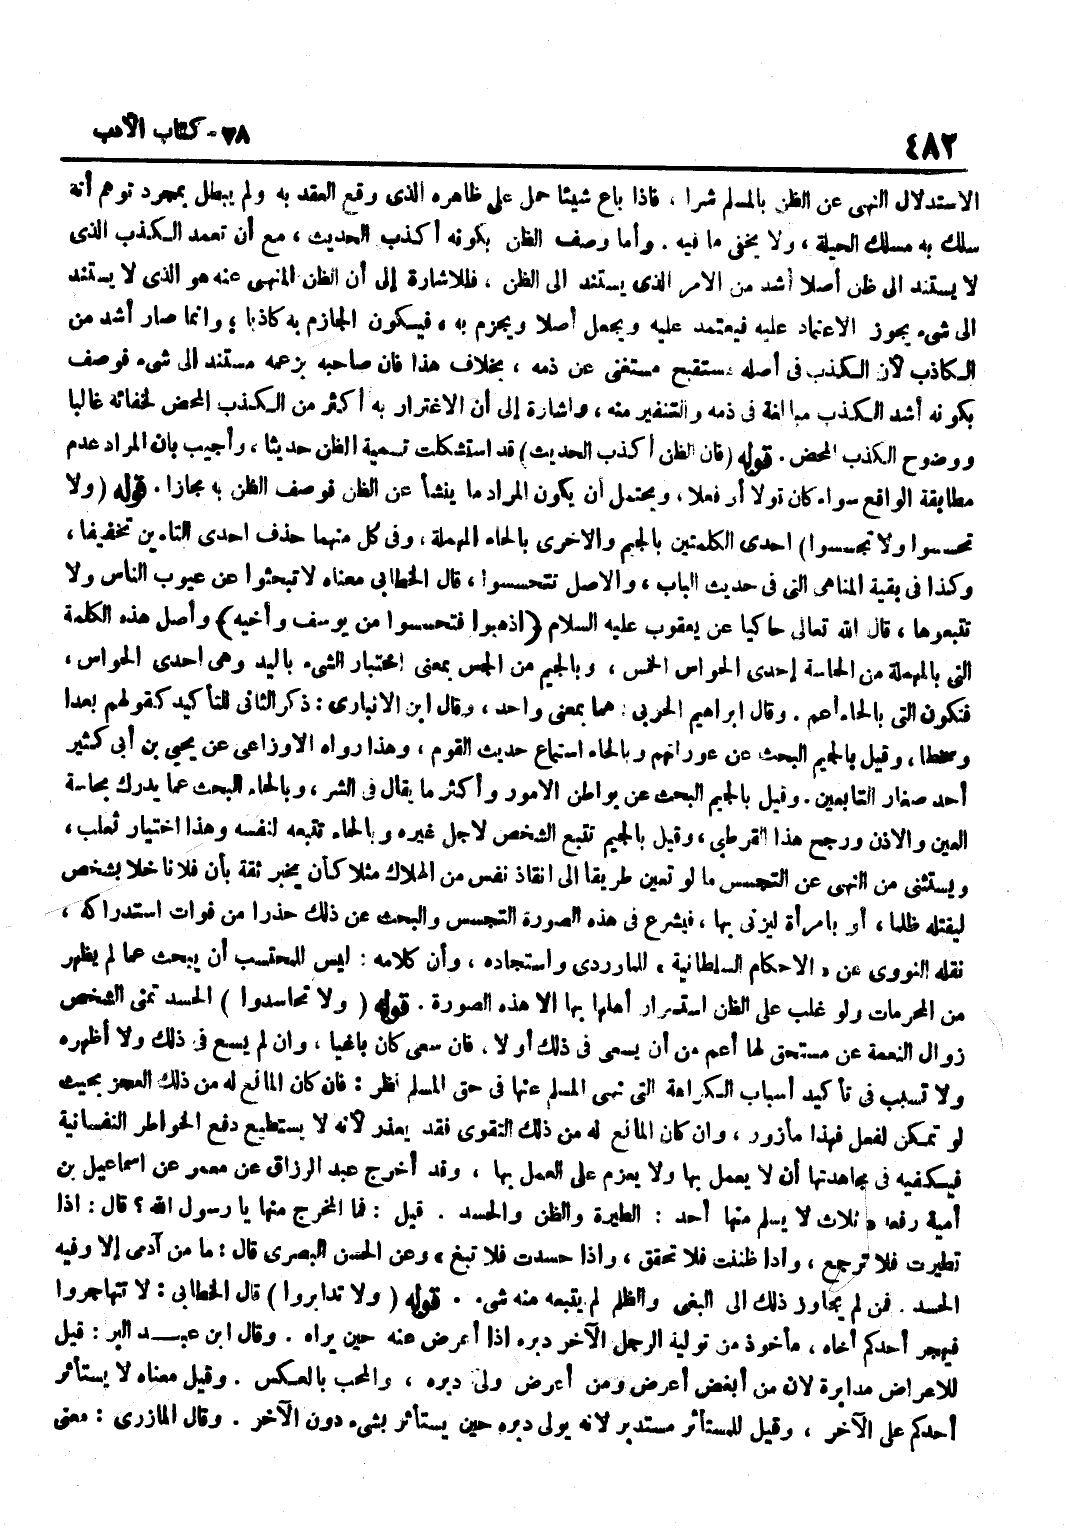 ٤٨٢
٧٨ - كتاب الأدب
الاستدلال النهى عن الظن بالمسلم شرا ، فاذا باع شيئا حمل على ظاهره الذى وقع العقد به ولم يبطل بمجرد توهم أنه
سلك به مسلك الحيلة ، ولا يخفى ما فيه . وأما وصف الظن بكونه أكذب الحديث ، مع أن تعمد الكذب الذى
لا يستند الى ظن أصلا أشد من الامر الذى يستند الى الظن ، فللاشارة إلى أن الظن المنهى عنه هو الذى لا يستند
الى شىء يجوز الاعتماد عليه فيعتمد عليه ويجعل أصلا ويجزم به ، فيكون الجازم به كاذبا ؛ وانما صار أشد من
الكاذب لأن الكذب فى أصله مستقبح مستغنى عن ذمه ، بخلاف هذا فان صاحبه بزعمه مستند الى شىء فوصف
بكونه أشد الكذب مبالغة فى ذمه والتنفير منه ، واشارة إلى أن الاغترار به أكثر من الكذب المحض لخفائه غالبا
ووضوح الكذب المحض . قوله ( فان الظن أكذب الحديث ) قد استشكلت تسمية الظن حديثا ، وأجيب بان المراد عدم
مطابقة الواقع سواء كان قولا أو فعلا ، ويحتمل أن يكون المراد ما ينشأ عن الظن فوصف الظن به مجازا . قوله ( ولا
تحسسوا ولا تجسسوا ) احدى الكلمتين بالجيم والاخرى بالحاء المهملة ، وفى كل منهما حذف احدى التاءين تخفيفا ،
وكذا فى بقية المناهى التى فى حديث الباب ، والاصل تتحسسوا ، قال الخطابى معناه لا تبحثوا عن عيوب الناس ولا
تتبعوها ، قال الله تعالى حاكيا عن يعقوب عليه السلام ﴿ اذهبوا فتحسسوا من يوسف وأخيه ﴾ وأصل هذه الكلمة
التى بالمهملة من الحاسة إحدى الحواس الخمس ، وبالجيم من الجس بمعنى اختبار الشىء باليد وهى احدى الحواس ،
فتكون التى بالحاء أعم . وقال ابراهيم الحربى : هما بمعنى واحد ، وقال ابن الانبارى : ذكر الثانى للتأكيد كقولهم بعدا
وسخطا ، وقيل بالجيم البحث عن عوراتهم وبالحاء استماع حديث القوم ، وهذا رواه الاوزاعى عن يحيى بن أبى كثير
أحد صغار التابعين . وقيل بالجيم البحث عن بواطن الامور وأكثر ما يقال فى الشر ، وبالحاء البحث عما يدرك بحاسة
العين والاذن ورجح هذا القرطبى ، وقيل بالجيم تتبع الشخص لاجل غيره وبالحاء تتبعه لنفسه وهذا اختيار ثعلب ،
ويستثنى من النهى عن التجسس ما لو تعين طريقا الى انقاذ نفس من الهلاك مثلا كأن يخبر ثقة بأن فلانا خلا بشخص
ليقتله ظلما ، أو بامرأة ليزنى بها ، فيشرع فى هذه الصورة التجسس والبحث عن ذلك حذرا من فوات استدراكه ،
نقله النووى عن « الاحكام السلطانية » للماوردى واستجاده ، وأن كلامه : ليس للمحتسب أن يبحث عما لم يظهر
من المحرمات ولو غلب على الظن استسرار أهلها بها الا هذه الصورة . قوله ( ولا تحاسدوا ) الحسد تمنى الشخص
زوال النعمة عن مستحق لها أعم من أن يسعى فى ذلك أو لا . فان سعى كان باغيا ، وان لم يسع فى ذلك ولا أظهره
ولا تسبب فى تأكيد أسباب الكراهة التى نهى المسلم عنها فى حق المسلم نظر : فان كان المانع له من ذلك العجز بحيث
لو تمكن لفعل فهذا مأزور ، وان كان المانع له من ذلك التقوى فقد يعذر لأنه لا يستطيع دفع الخواطر النفسانية
فيكفيه فى مجاهدتها أن لا يعمل بها ولا يعزم على العمل بها ، وقد أخرج عبد الرزاق عن معمر عن اسماعيل بن
أمية رفعه « ثلاث لا يسلم منها أحد : الطيرة والظن والحسد . قيل : فما المخرج منها يا رسول الله ؟ قال : اذا
تطيرت فلا ترجع ، وإذا ظننت فلا تحقق ، واذا حسدت فلا تبغ » وعن الحسن البصرى قال : ما من آدمى إلا وفيه
الحسد . فمن لم يجاوز ذلك الى البغى والظلم لم يتبعه منه شىء . قوله ( ولا تدابروا ) قال الخطابى : لا تتهاجروا
فيهجر أحدكم أخاه ، مأخوذ من تولية الرجل الآخر دبره اذا أعرض عنه حين يراه . وقال ابن عبد البر : قيل
للاعراض مدابرة لان من أبغض أعرض ومن أعرض ولى دبره ، والمحب بالعكس . وقيل معناه لا يستأثر
أحدكم على الآخر ، وقيل للمستأثر مستدبر لانه يولى دبره حين يستأثر بشىء دون الآخر . وقال المازرى : معنى